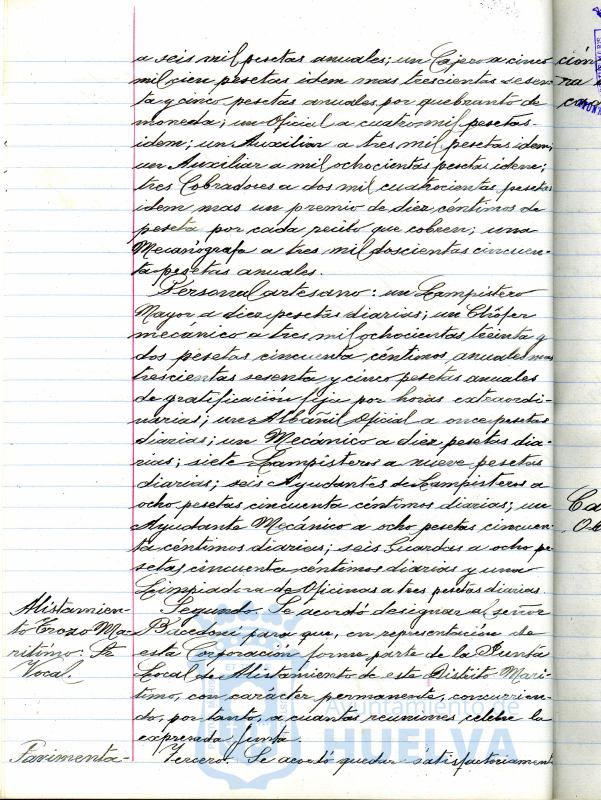 a seis mil pesetas anuales; un Cajero a cinco
mil cien pesetas idem mas trescientas sesen-
ta y cinco pesetas anuales por quebranto de
moneda; un Oficial a cuatro mil pesetas
idem; un Auxiliar a tres mil pesetas idem;
un Auxiliar a mil ochocientas pesetas idem;
tres Cobradores a dos mil cuatrocientas pesetas
idem mas un premio de diez céntimos de
peseta por cada recibo que cobren; una
Mecanógrafa a tres mil doscientas cincuen-
ta pesetas anuales.
Personal artesano: un Lampistero
Mayor a diez pesetas diarias; un Chófer
mecánico a tres mil ochocientas treinta y
dos pesetas cincuenta céntimos anuales mas
trescientas sesenta y cinco pesetas anuales
de gratificación fija por horas extraordi-
narias; un Albañil Oficial a once pesetas
diarias; un Mecánico a diez pesetas dia-
rias; siete Lampisteros a nueve pesetas
diarias; seis Ayudantes de Lampisteros a
ocho pesetas cincuenta céntimos diarias; un
Ayudante Mecánico a ocho pesetas cincuen-
ta céntimos diarias; seis Guardas a ocho pe-
setas cincuenta céntimos diarias y una
Limpiadora de Oficinas a tres pesetas diarias.
Alistamien-
to Trozo Ma-
rítimo.
Vocal.
Segundo. Se acordó designar al señor
Baccdoni para que, en representación de
esta Corporación forme parte de la Junta
Local de Alistamiento de este Distrito Marí-
timo, con carácter permanente, concurrien-
do, por tanto, a cuantas reuniones celebre la
expresada Junta.
Pavimenta-
Tercero. Se acordó quedar satisfactoriament
Ayuntamiento de
HUELVA